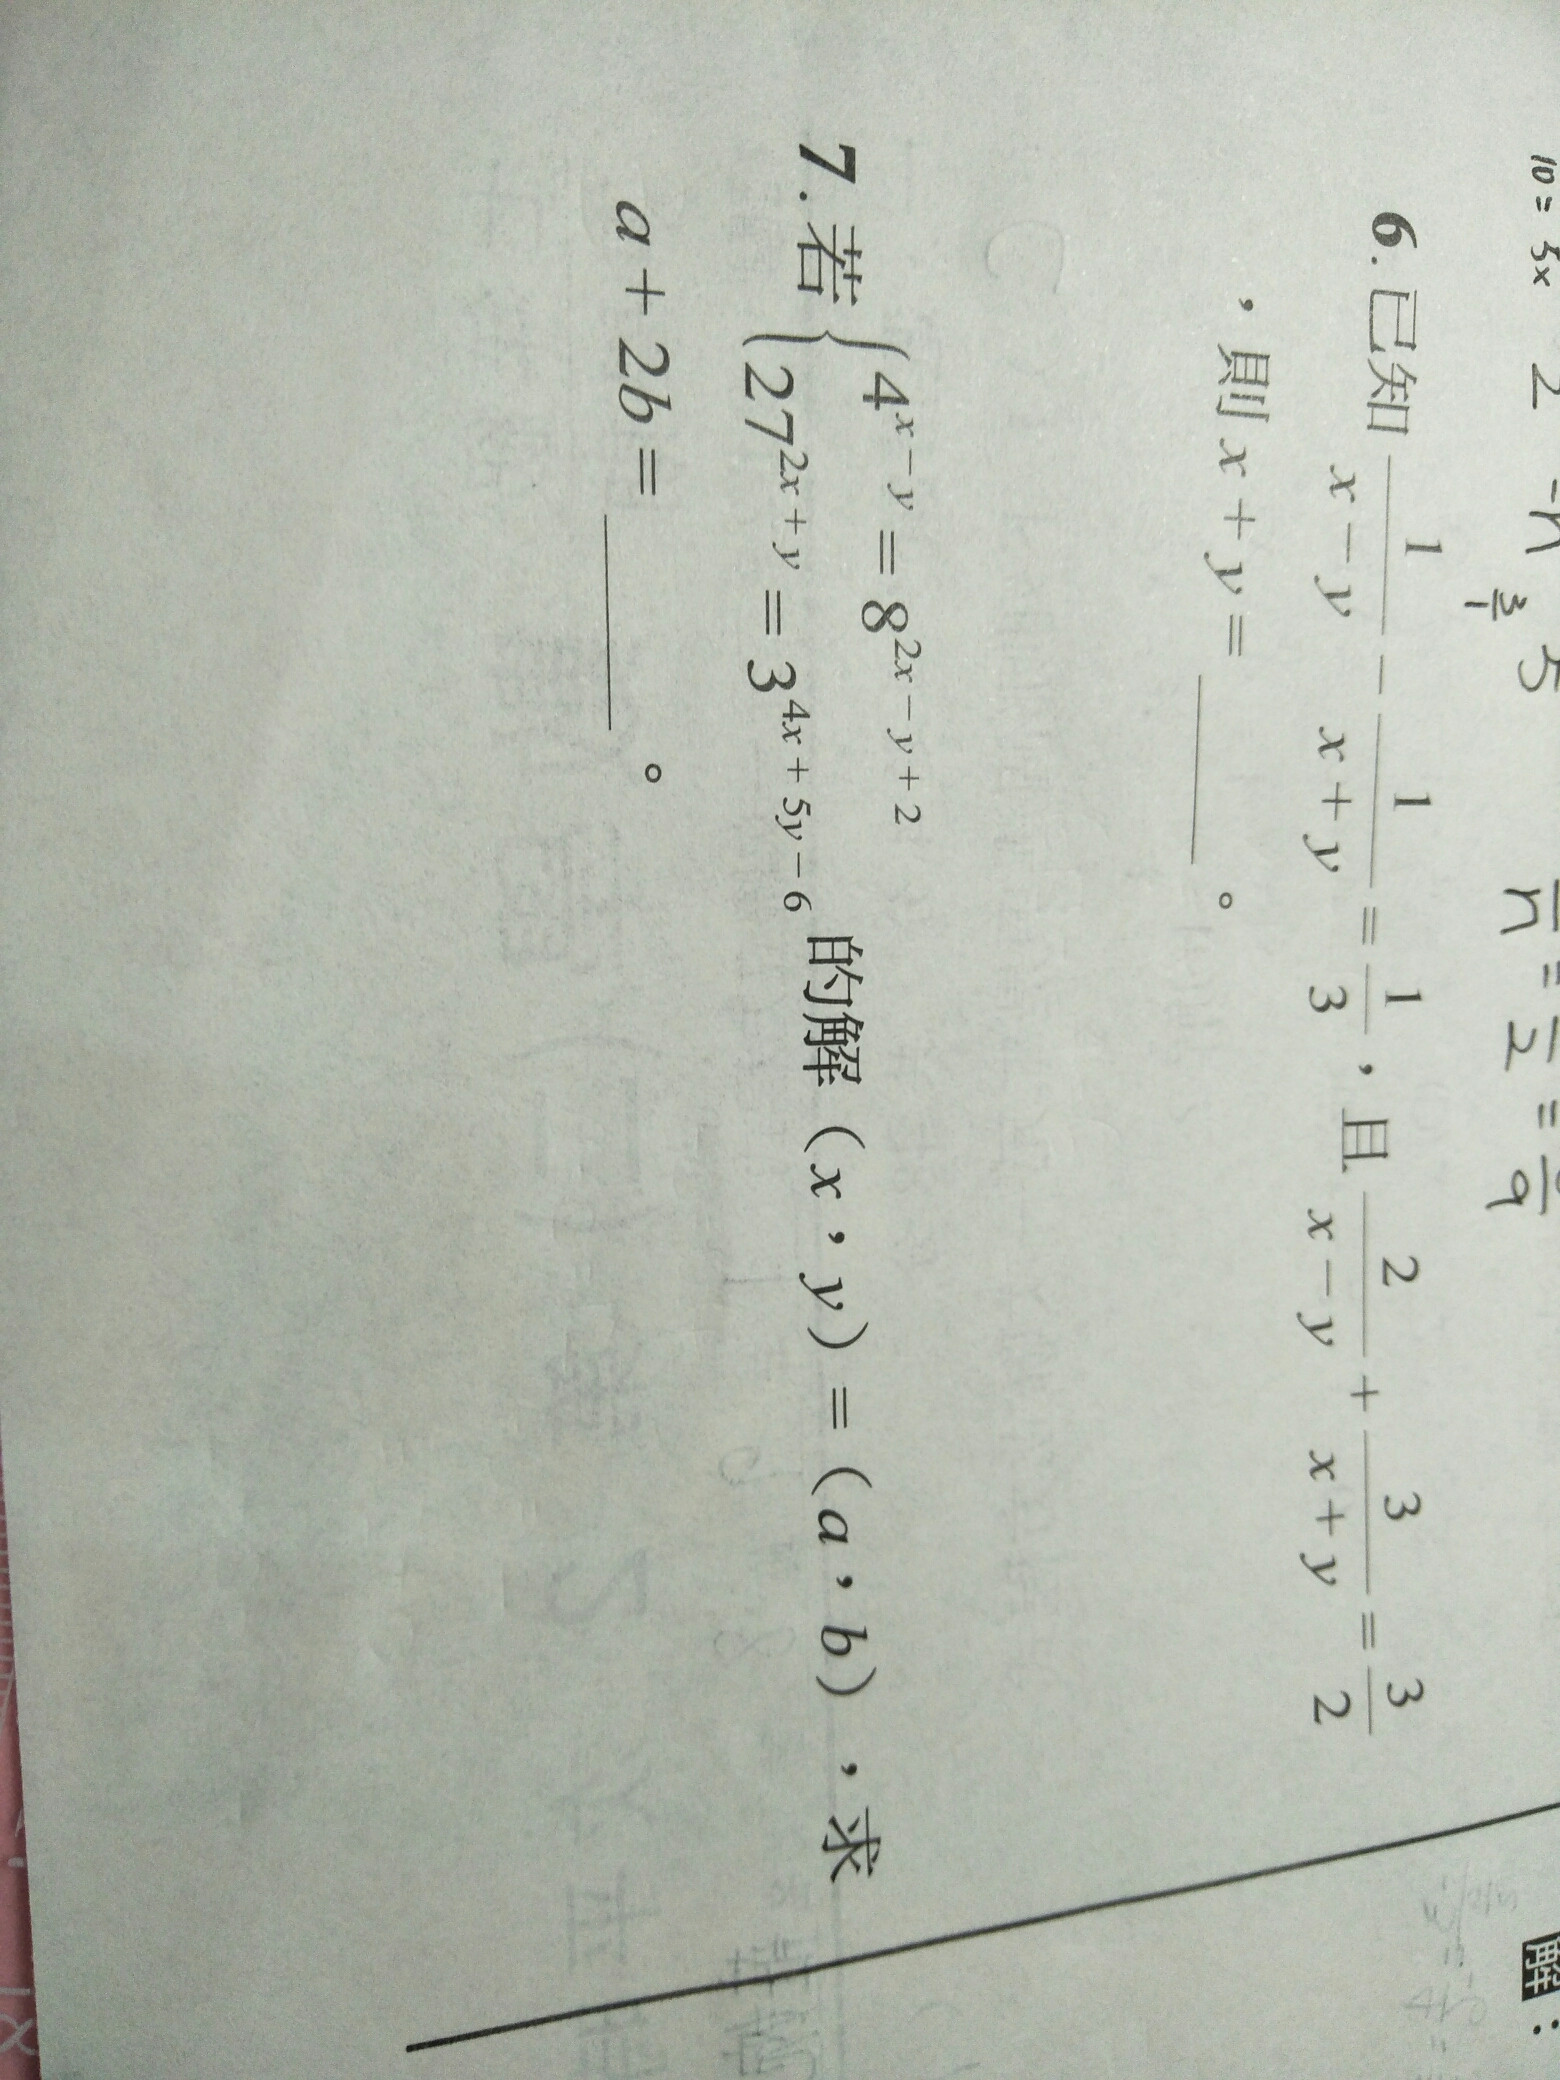 10 = 5x
6.已知 \frac{1}{x-y} - \frac{1}{x+y} = \frac{1}{3},且 \frac{2}{x-y} + \frac{3}{x+y} = \frac{3}{2}
,則 x + y = ______。
7.若 \begin{cases} 4^{x-y} = 8^{2x-y+2} \\ 27^{2x+y} = 3^{4x+5y-6} \end{cases} 的解(x,y)=(a,b),求
a + 2b = ______。
解: